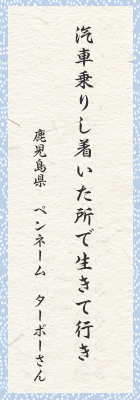 汽車乗りし着いた所で生きて行き
鹿児島県 ペンネーム ターボーさん